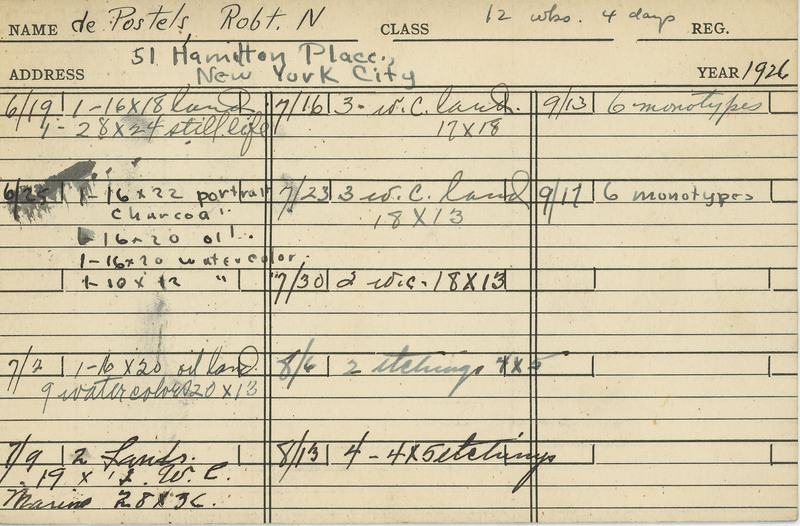 NAME de Postels, Robt. N CLASS 12 wks. 4 days REG.
ADDRESS 51 Hamilton Place,
New York City YEAR 1926
6/19 1-16X18 land
1- 28X24 still life
6/25 1-16x22 portrait
charcoal
1-16x20 oil
1-16x20 watercolor
1-10x12 "
7/2 1-16x20 oil land
9 watercolors 20x13
7/9 2 Lands.
19 x W.C.
Marine 28X36.
7/16 3- w.c. land.
17x18
7/23 3 w.c. land
18X13
7/30 2 w.c. 18X13
8/6 2 etchings 4x5
8/13 4-4x5 etchings
9/13 6 monotypes
9/17 6 monotypes